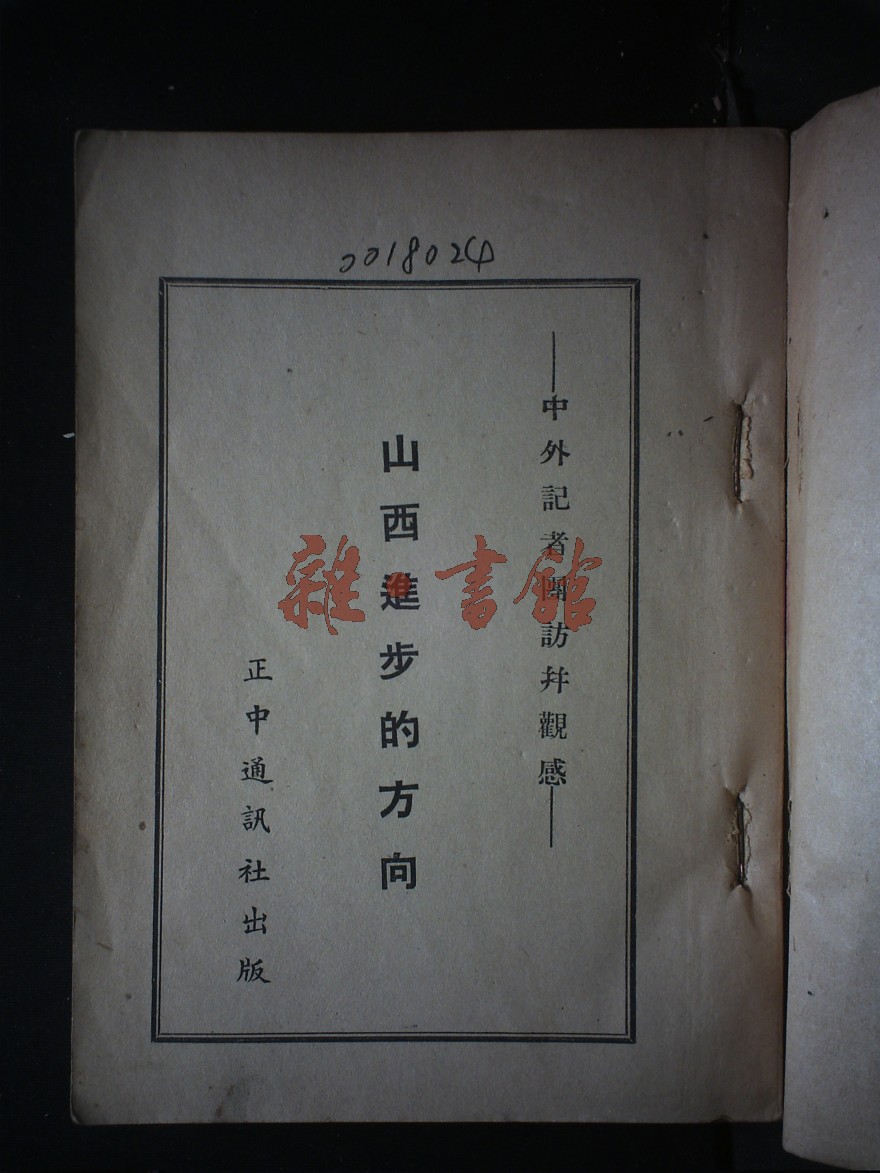 0018024
——中外記者團訪幷觀感——
山西進步的方向
正中通訊社出版
雜·書館